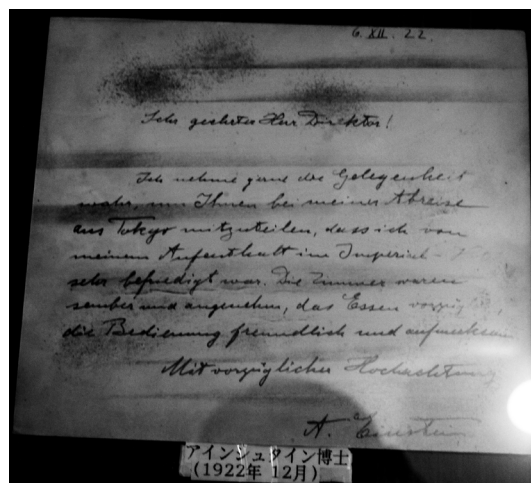 6. XII. 22.
Sehr geehrter Herr Direktor!
Ich nehme gerne die Gelegenheit
wahr, um Ihnen bei meiner Abreise
aus Tokyo mitzuteilen, dass ich von
meinem Aufenthalt im Imperial-
sehr befriedigt war. Die Zimmer waren
sauber und angenehm, das Essen
die Bedienung freundlich und aufmerksam
Mit vorzüglicher Hochachtung
A. Einstein.
アインシュタイン博士
(1922年 12月)